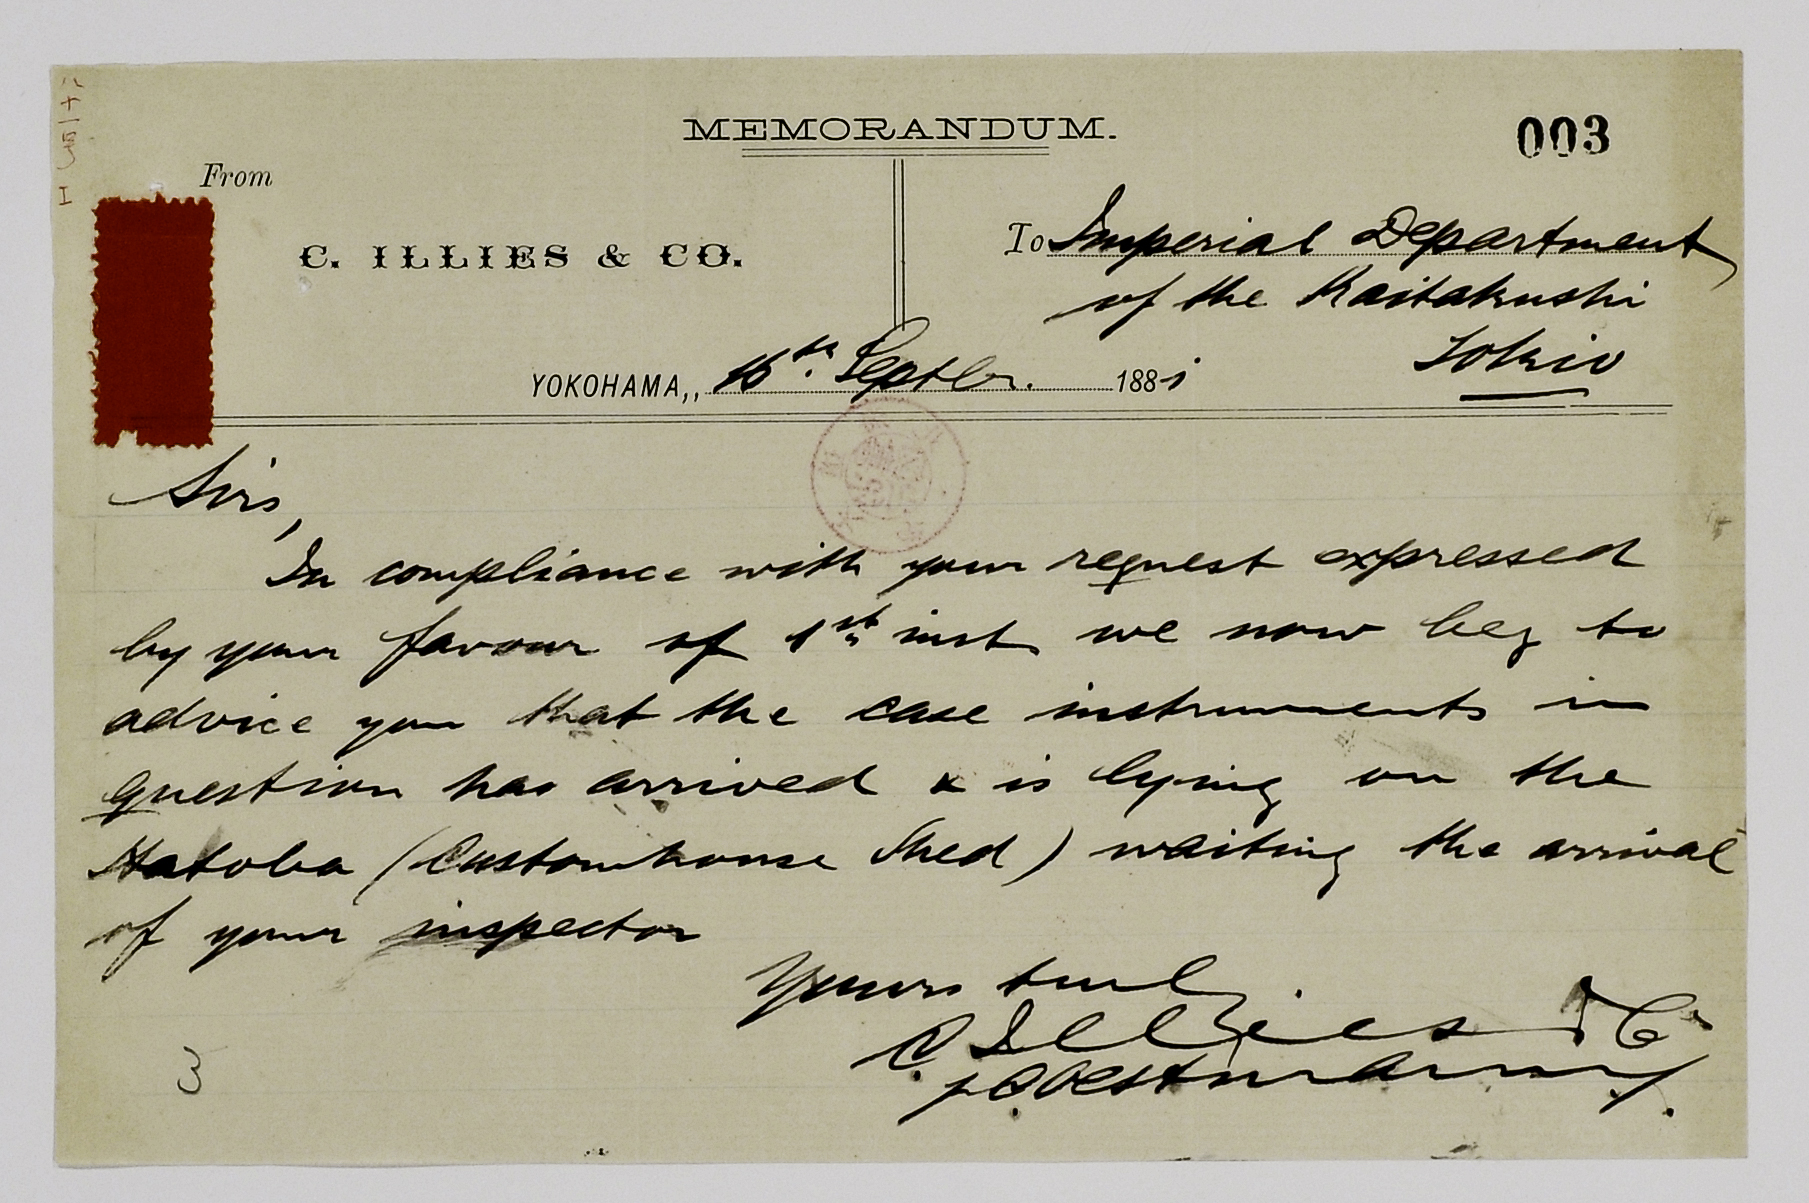 八十一号
I
MEMORANDUM.
003
From
C. ILLIES & CO.
To Imperial Department
of the Kaitakushi
Tokio
YOKOHAMA,, Septbr. 1881
Sirs,
In compliance with your request expressed
by your favour of 1st inst. we now beg to
advice you that the case instruments in
question has arrived & is lying on the
Hatoba (Customhouse Shed) waiting the arrival
of your inspector
Yours truly
C. Illies & Co
3